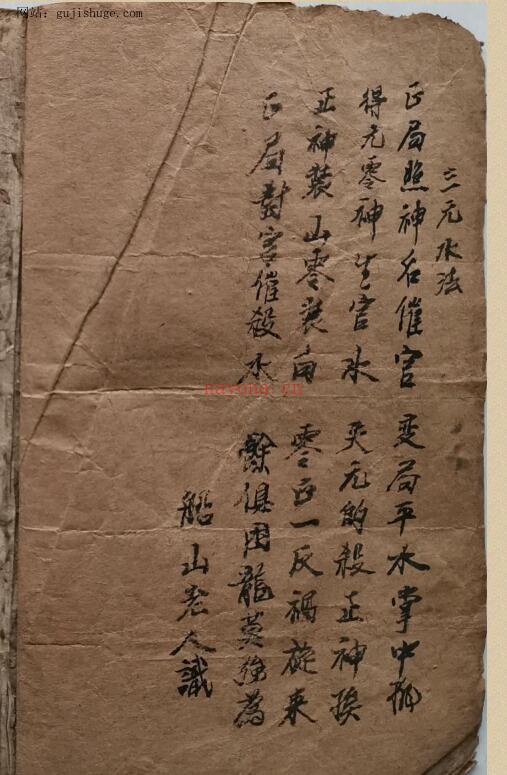 网站: gujishuge.com
三元水法
正局照神名催官 变局平水掌中
得元零神生官水 失元的殺正神挨
正神裝山零裝向 零正一反禍旋来
正局對宮催殺水 餘俱困龍莫強為
船山老人識
nayona.cn